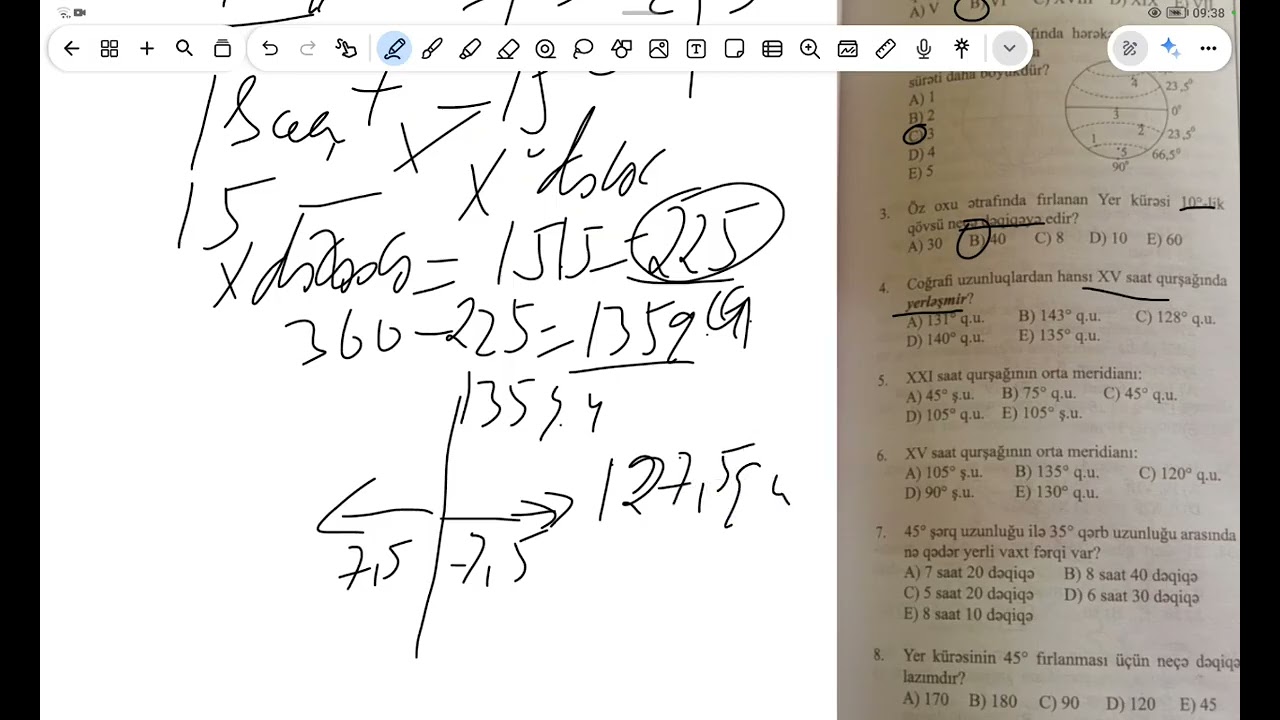 09:38
A) V B) VI C) XVIII D) XIX E) VII
sürəti daha böyükdür?
A) 1
B) 2
C) 3
D) 4
E) 5
4
23,5°
3
0°
1
2
23,5°
5
66,5°
90°
3. Öz oxu ətrafında fırlanan Yer kürəsi 10°-lik
qövsü neçə dəqiqəyə edir?
A) 30 B) 40 C) 8 D) 10 E) 60
4. Coğrafi uzunluqlardan hansı XV saat qurşağında
yerləşmir?
A) 131° q.u. B) 143° q.u. C) 128° q.u.
D) 140° q.u. E) 135° q.u.
5. XXI saat qurşağının orta meridianı:
A) 45° ş.u. B) 75° q.u. C) 45° q.u.
D) 105° q.u. E) 105° ş.u.
6. XV saat qurşağının orta meridianı:
A) 105° ş.u. B) 135° q.u. C) 120° q.u.
D) 90° ş.u. E) 130° q.u.
7. 45° şərq uzunluğu ilə 35° qərb uzunluğu arasında
nə qədər yerli vaxt fərqi var?
A) 7 saat 20 dəqiqə B) 8 saat 40 dəqiqə
C) 5 saat 20 dəqiqə D) 6 saat 30 dəqiqə
E) 8 saat 10 dəqiqə
8. Yer kürəsinin 45° fırlanması üçün neçə dəqiqə
lazımdır?
A) 170 B) 180 C) 90 D) 120 E) 45
1 saat
15
= 15·15=225
360-225=135q.
135
7,5
-7,5
127,5